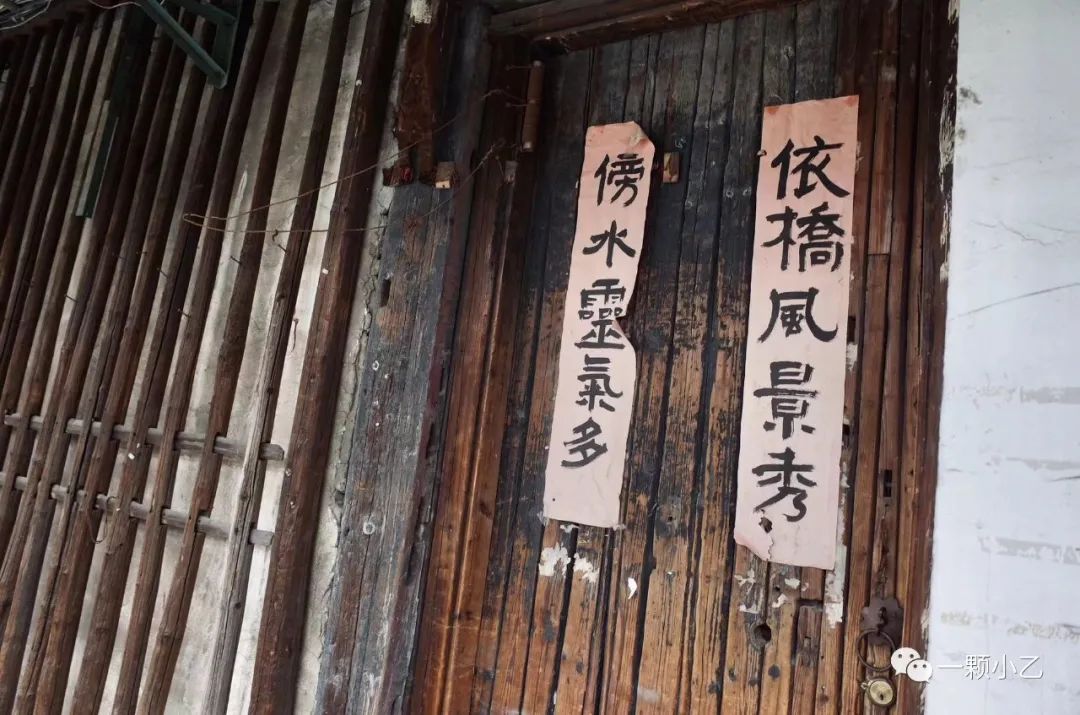 依橋風景秀
傍水靈氣多
一颗小乙